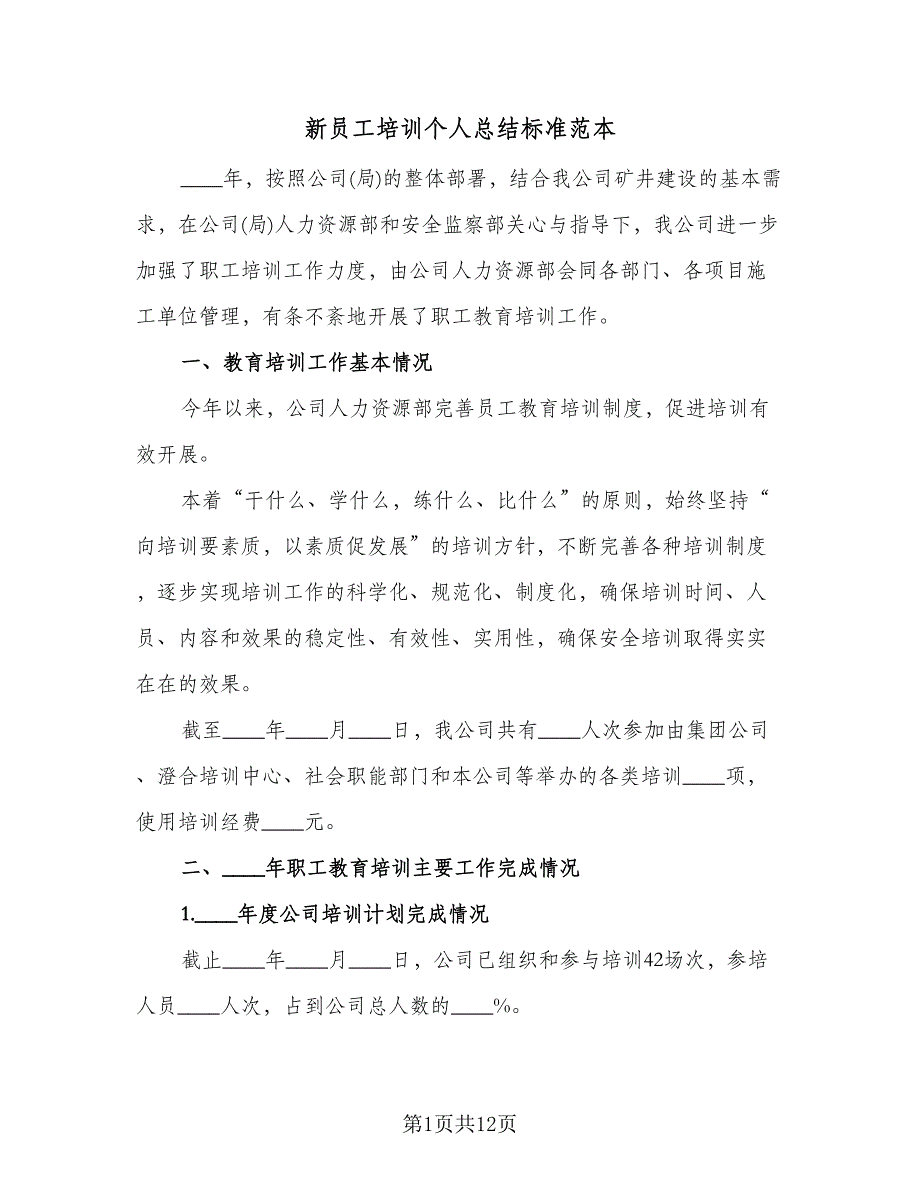 新员工培训个人总结标准范本
____年，按照公司(局)的整体部署，结合我公司矿井建设的基本需
求，在公司(局)人力资源部和安全监察部关心与指导下，我公司进一步
加强了职工培训工作力度，由公司人力资源部会同各部门、各项目施
工单位管理，有条不紊地开展了职工教育培训工作。
一、教育培训工作基本情况
今年以来，公司人力资源部完善员工教育培训制度，促进培训有
效开展。
本着“干什么、学什么，练什么、比什么”的原则，始终坚持“
向培训要素质，以素质促发展”的培训方针，不断完善各种培训制度
，逐步实现培训工作的科学化、规范化、制度化，确保培训时间、人
员、内容和效果的稳定性、有效性、实用性，确保安全培训取得实实
在在的效果。
截至____年____月____日，我公司共有____人次参加由集团公司
、澄合培训中心、社会职能部门和本公司等举办的各类培训____项，
使用培训经费____元。
二、____年职工教育培训主要工作完成情况
1.____年度公司培训计划完成情况
截止____年____月____日，公司已组织和参与培训42场次，参培
人员____人次，占到公司总人数的____%。
第1页共12页